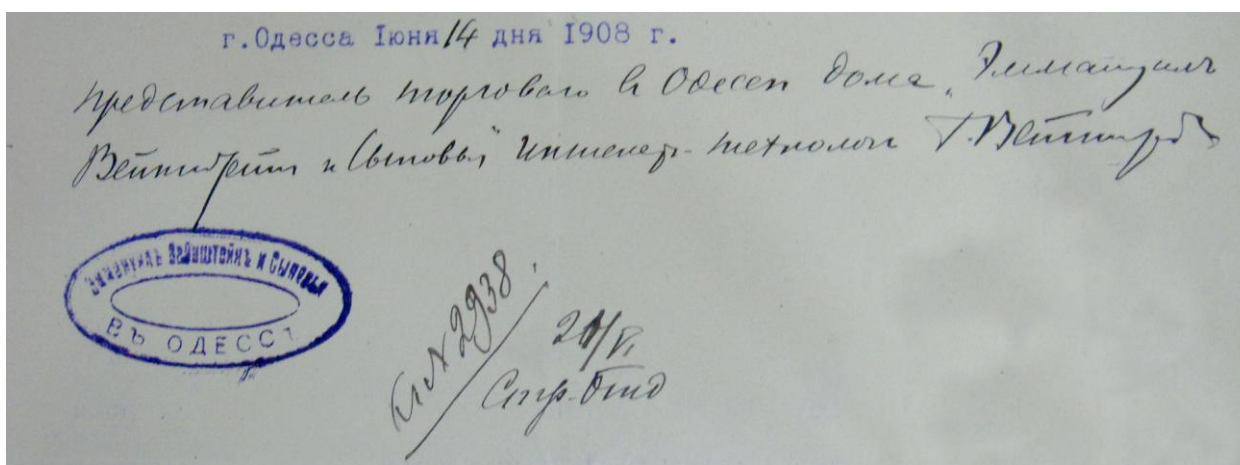 г.Одесса Iюня 14 дня 1908 г.
Представитель торговаго в Одессе дома „Эммануилъ
Вейнштейн и Сыновья" Инженер-технологъ Г. Вейнштейн
Эммануилъ Вейнштейнъ и Сыновья
ВЪ ОДЕССѢ
№ 2938
21/VI
Стр. Отд